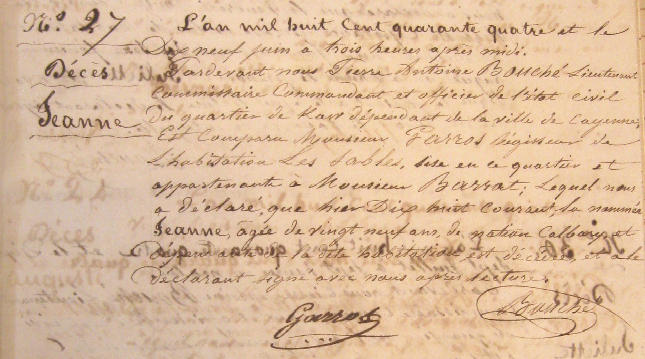 N.º 27
Décès
Jeanne
L'an mil huit Cent quarante quatre et le
Dix neuf juin à trois heures après midi.
Pardevant nous Pierre Antoine Bouché Lieutenant
Commissaire Commandant et officier de l'état civil
du quartier de Kaw dépendant de la ville de Cayenne;
Est Comparu Monsieur Garros Régisseur de
L'habitation Les Sables, sise en ce quartier et
appartenante à Monsieur Barrat; Lequel nous
a déclaré, que hier Dix huit courant, la nommée
Jeanne, âgée de vingt neuf ans, de nation Calbary, et
dépendante de la dite habitation est décédée, et a le
déclarant signé avec nous après lecture.
Garros
Bouché